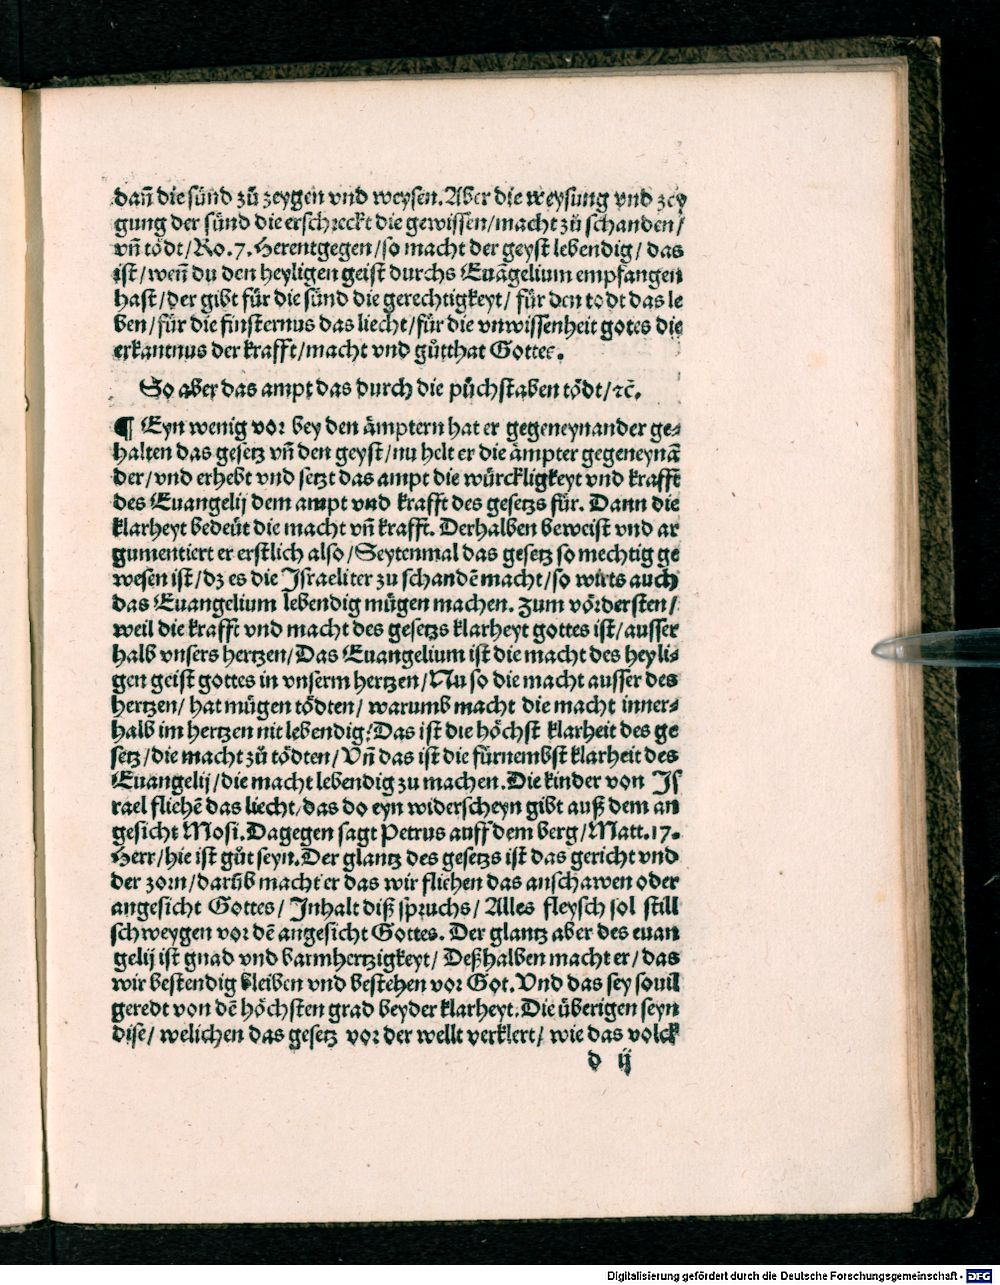 dañ die sünd zů zeygen vnd weysen. Aber die weysung vnd zey
gung der sünd die erschreckt die gewissen/macht zů schanden/
vñ tödt/Ro.7. Herentgegen/so macht der geyst lebendig/ das
ist/wen̄ du den heyligen geist durchs Euāgelium empfangen
hast/der gibt für die sünd die gerechtigkeyt/ für den todt das le
ben/für die finsternus das liecht/für die vnwissenheit gotes die
erkantnus der krafft/macht vnd gůtthat Gottes.
So aber das ampt das durch die půchstaben tödt/ꝛc̄.
¶ Eyn wenig vor bey den ämptern hat er gegeneynander ge⸗
halten das gesetz vñ den geyst/nu helt er die ämpter gegeneynā
der/vnd erhebt vnd setzt das ampt die würckligkeyt vnd krafft
des Euangelij dem ampt vnd krafft des gesetzs für. Dann die
klarheyt bedeüt die macht vñ krafft. Derhalben beweist vnd ar
gumentiert er erstlich also/Seytenmal das gesetz so mechtig ge
wesen ist/dz es die Israeliter zu schandē macht/so wirts auch
das Euangelium lebendig mügen machen. Zum vördersten/
weil die krafft vnd macht des gesetzs klarheyt gottes ist/ausser
halb vnsers hertzen/Das Euangelium ist die macht des heyli⸗
gen geist gottes in vnserm hertzen/Nu so die macht ausser des
hertzen/ hat mügen tödten/ warumb macht die macht inner⸗
halb im hertzen nit lebendig? Das ist die höchst klarheit des ge
setz/die macht zů tödten/Vñ das ist die fürnembst klarheit des
Euangelij/die macht lebendig zu machen. Die kinder von Is
rael fliehē das liecht/das do eyn widerscheyn gibt auß dem an
gesicht Mosi. Dagegen sagt Petrus auff dem berg/Matt.17.
Herr/hie ist gůt seyn. Der glantz des gesetzs ist das gericht vnd
der zorn/darüb macht er das wir fliehen das anschawen oder
angesicht Gottes/ Inhalt diß spruchs/ Alles fleysch sol still
schweygen vor dē angesicht Gottes. Der glantz aber des euan
gelij ist gnad vnd barmhertzigkeyt/ Deßhalben macht er/ das
wir bestendig bleiben vnd bestehen vor Got. Vnd das sey souil
geredt von dē höchsten grad beyder klarheyt. Die überigen seyn
dise/ welichen das gesetz vor der wellt verklert/ wie das volck
d ij
Digitalisierung gefördert durch die Deutsche Forschungsgemeinschaft - DFG